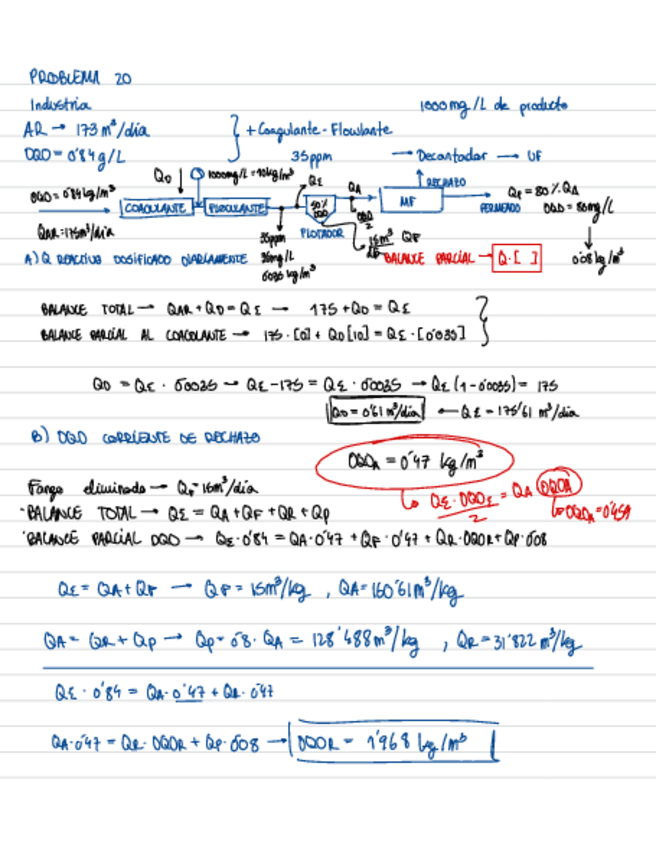 PROBLEMA 20
Industria
1000mg/L de producto
AR → 173 m³/día
+ Coagulante - Floculante
DQO = 0'84 g/L
35ppm → Decantador → UF
QD 1000mg/L = 10kg/m³ QE QA RECHAZO QP = 80% QA
DQO = 0'84 kg/m³ COAGULANTE FLOCULANTE 50% DQO MF PERMEADO DQO = 80mg/L
QAR = 175m³/día 35ppm FLOTADOR 15m³ QF
35mg/L
0'035 kg/m³ 0'08 kg/m³
A) Q REACTIVO DOSIFICADO DIARIAMENTE BALANCE PARCIAL → Q·[ ]
BALANCE TOTAL → QAR + QD = QE → 175 + QD = QE
BALANCE PARCIAL AL COAGULANTE → 175·[0] + QD[10] = QE·[0'035]
QD = QE · 0'0035 → QE - 175 = QE · 0'0035 → QE (1 - 0'0035) = 175
QD = 0'61 m³/día ← QE = 175'61 m³/día
B) DQO CORRIENTE DE RECHAZO
DQOA = 0'47 kg/m³
Fango eliminado → QF = 15m³/día
QE·DQOE/2 = QA DQOA
↳ DQOA = 0'459
· BALANCE TOTAL → QE = QA + QF + QR + QP
· BALANCE PARCIAL DQO → QE·0'84 = QA·0'47 + QF·0'47 + QR·DQOR + QP·0'08
QE = QA + QF → QF = 15m³/kg , QA = 160'61 m³/kg
QA = QR + QP → QP = 0'8·QA = 128'488 m³/kg , QR = 31'822 m³/kg
QE · 0'84 = QA·0'47 + QR·0'47
QA·0'47 = QR·DQOR + QP·0'08 → DQOR = 1'968 kg/m³